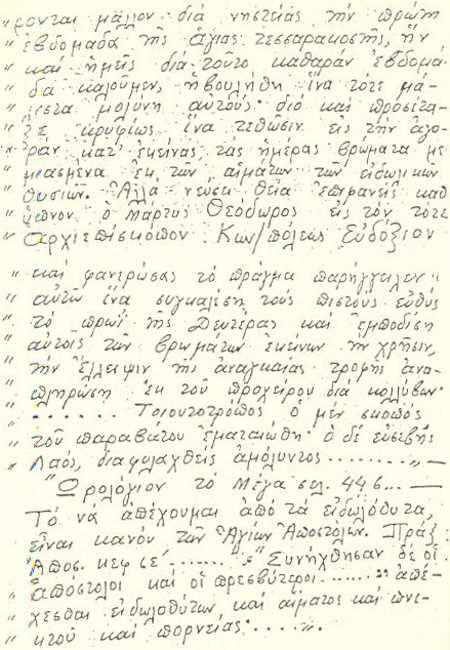 „ρονται μᾶλλον διά νηστείας τήν πρώτη
„ ἑβδομάδα τῆς ἁγίας τεσσαρακοστῆς, ἥν
„ καί ἡμεῖς διά τοῦτο καθαράν ἑβδομά-
„ δα καλοῦμεν, ἠβουλήθη ἵνα τότε μά-
„ λιστα μολύνη αὐτούς· διό καί προσέτα-
„ ξε κρυφίως ἵνα τεθῶσιν εἰς τήν ἀγο-
„ ράν κατ' ἐκείνας τας ἡμέρας βρώματα με
„ μιασμένα ἐκ τῶν αἱμάτων τῶν εἰδωλικῶν
„ θυσιῶν. Ἀλλά νεύσει θεία ἐπιφανείς καθ
„ ὕπνον ὁ Μάρτυς Θεόδωρος εἰς τόν τότε
„ Ἀρχιεπίσκοπον Κων/πόλεως Εὐδόξιον
„ καί φανερώσας τό πρᾶγμα παρήγγειλεν „
„ αὐτῶ ἵνα συγκαλέση τούς πιστούς εὐθύς
„ τό πρωΐ τῆς Δευτέρας καί ἐμποδίση
„ αὐτοῖς τῶν βρωμάτων ἐκείνων τήν χρῆσιν,
„ τήν ἔλλειψιν τῆς ἀναγκαίας τροφῆς ἀνα-
„ πληρώση ἐκ τοῦ προχείρου διά κολλύβων·
„ ....... Τοιουτοτρόπως ὁ μέν σκοπός
„ τοῦ παραβάτου ἐματαιώθη ὁ δέ εὐσεβής
„ Λαός, διαφυλαχθείς ἀμόλυντος ........„ —
„ Ὡρολόγιον τό Μέγα σελ. 446... —
Τό νά ἀπέχουμαι ἀπό τά εἰδωλόθυτα,
εἶναι κανόν τῶν Ἁγίων Ἀποστόλων. Πράξ:
Ἀποσ. κεφ ιέ ....... ς„ Συνήχθησαν δέ οἱ
„ ἀπόστολοι καί οἱ πρεσβύτεροι ....... „ ἀπέ-
„ χεσθαι εἰδωλοθύτων καί αἵματος καί πνι-
„ κτοῦ καί πορνείας .....„.